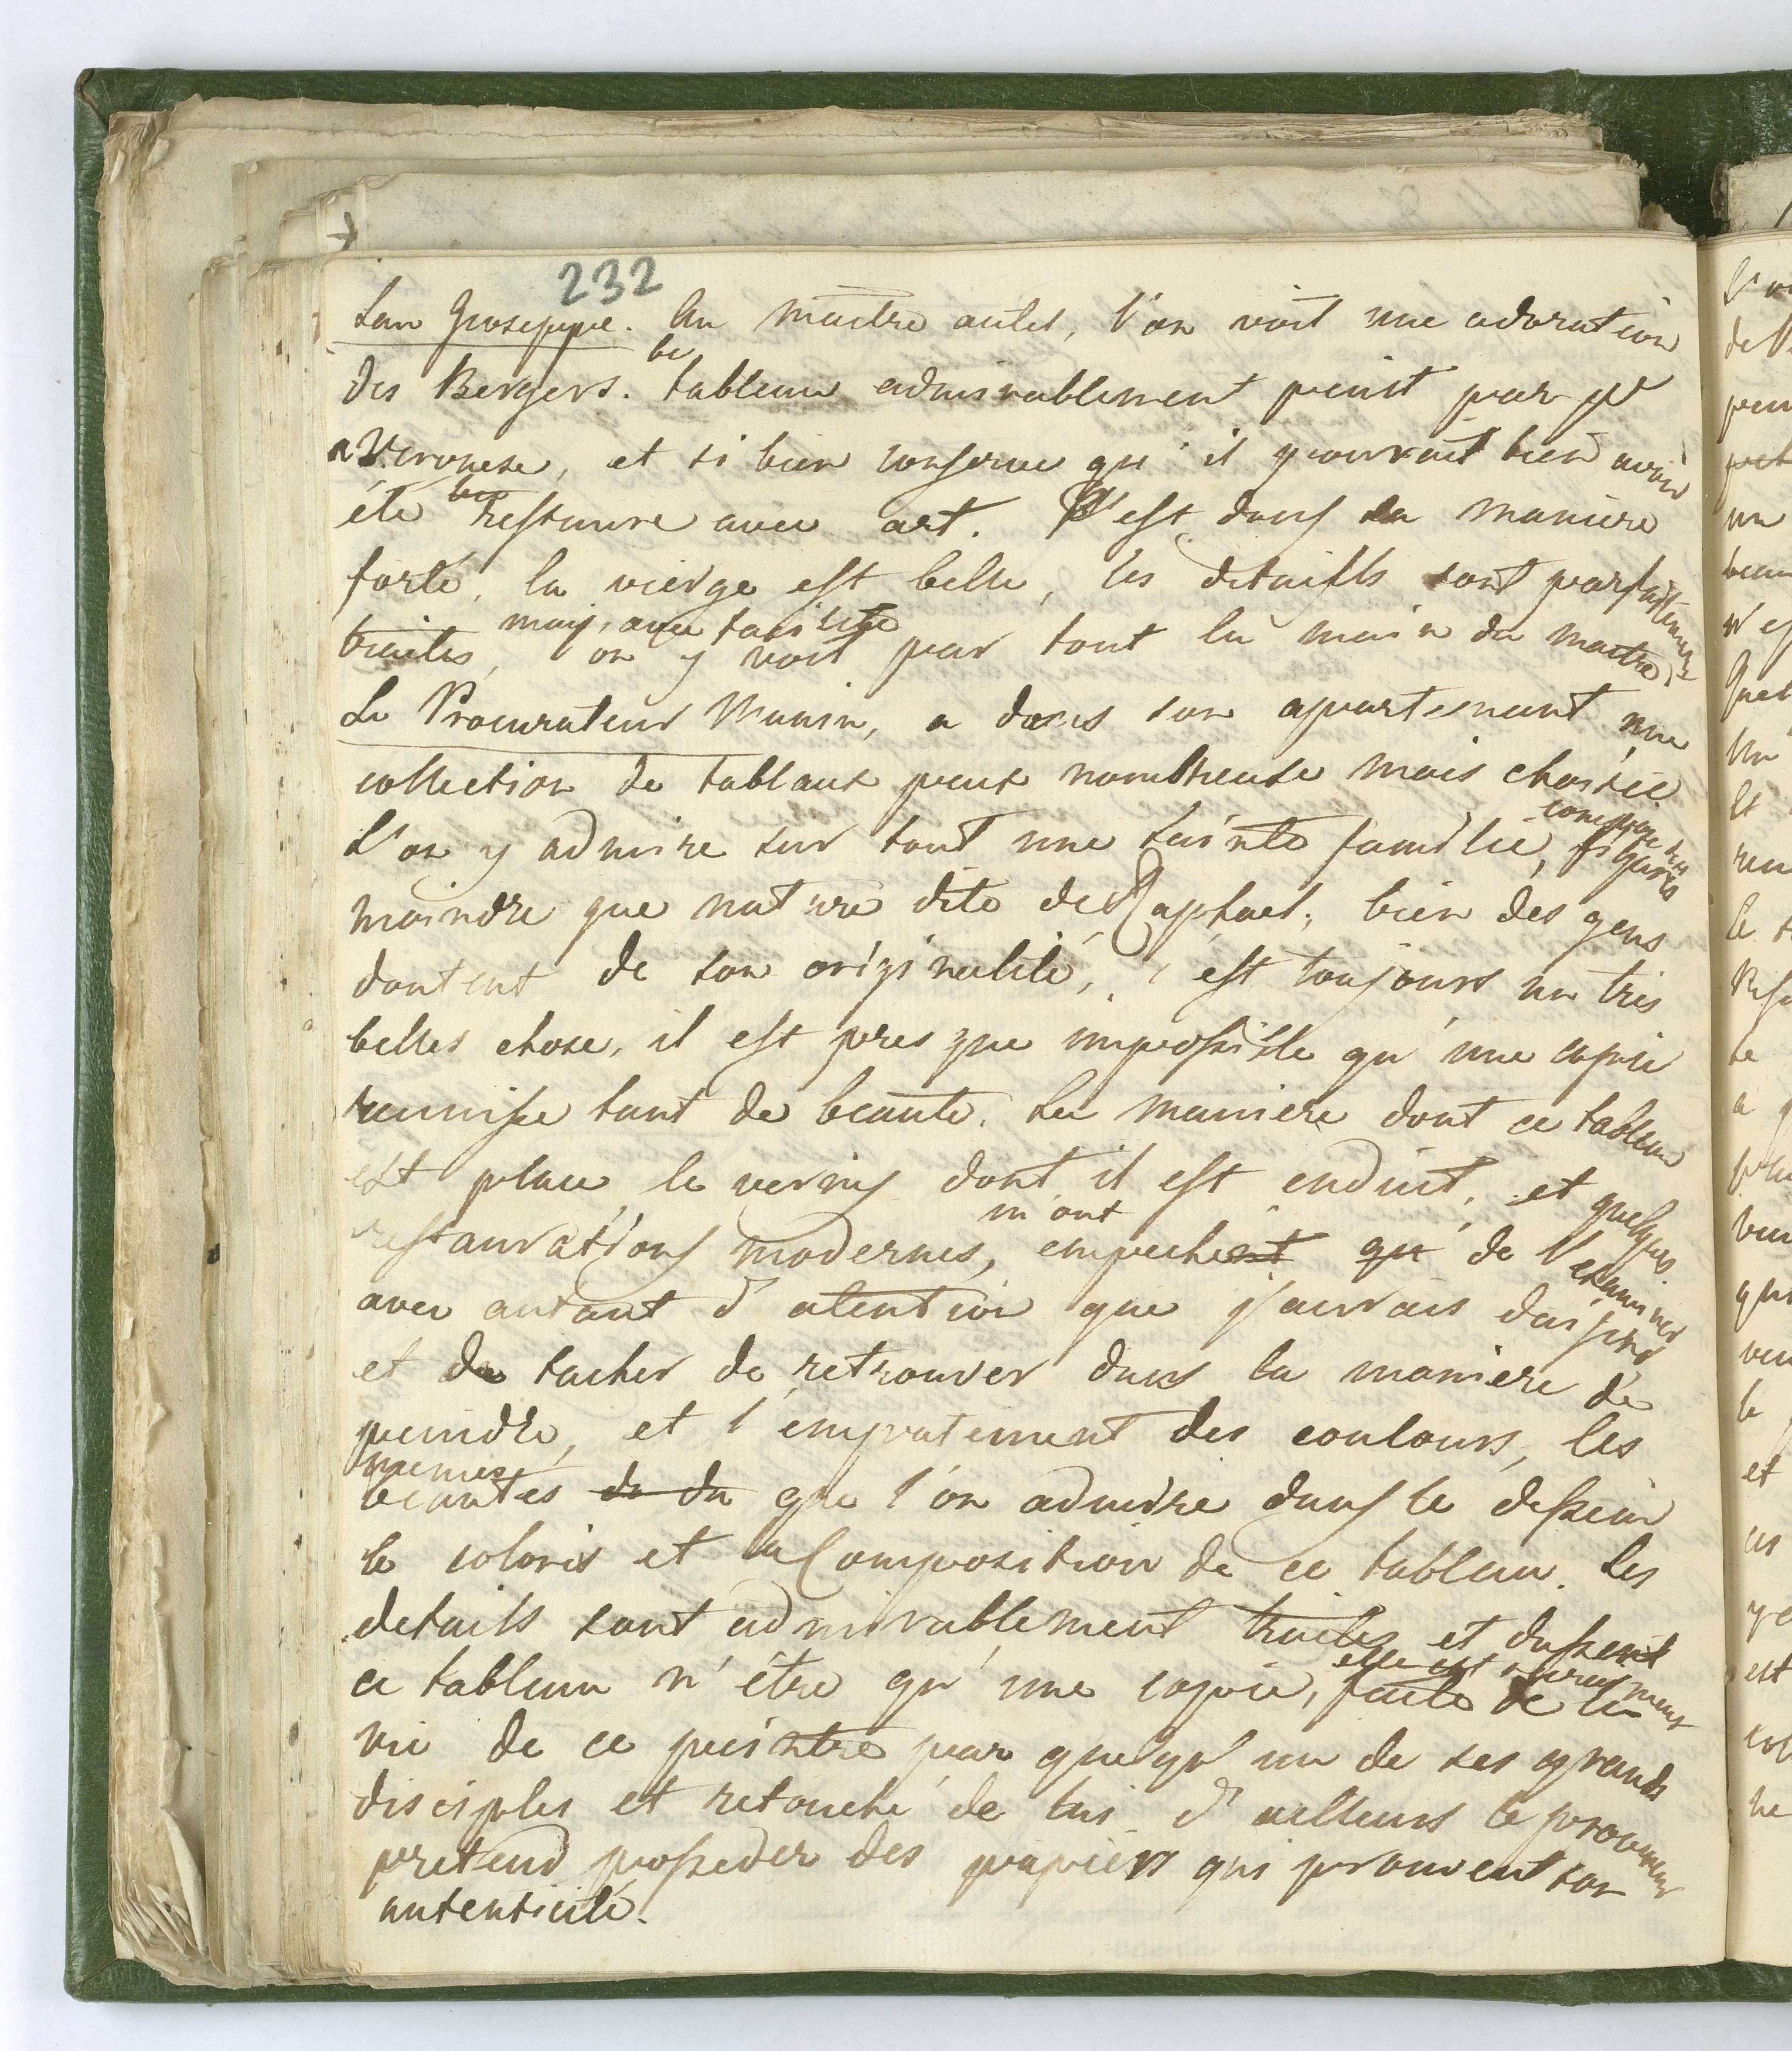 232
San Giuseppe. Au maitre autel, l'on voit une adoration
des Bergers. ce tableau admirablement peint par pl
Veronese, et si bien conserve qu'il pourrait bien avoir
été restaure avec art. C'est dans sa maniere
forte, la vierge est belle, les detaills sont parfaitement
traites, mais avec facilite on y voit par tout la main du maitre,
Le Procurateur Manin, a dans son apartement une
collection de tablaux peux nombreuse mais choisie
L'on y admire sur tout une Sainte famille, composee de figures
moindre que nature dite de Raphael, bien des gens
doutent de son originalité, c'est toujours un tres
belles chose, il est presque impossible qu'une copie
reunisse tant de beauté. La maniere dont ce tableau
est place le vernis dont il est enduit, et quelques
restaurations modernes, m'ont empechent qu' de l'examiner
avec autant d'atention que j'aurais desiré
et de tacher de retrouver dans la maniere de
peindre, et l'empatement des coulours, les
memes beautes de du que l'on admire dans le dessein
le coloris et la Composition de ce tableau. Les
details sont admirablement traites et dussent
ce tableau n'être qu'une copie, elle est surement faite de la
vie de ce peintre par quelqu'un de ses grands
disciples et retouché de lui. d'ailleurs le procurateur
pretend posseder des papiers qui prouvent son
autenticité.